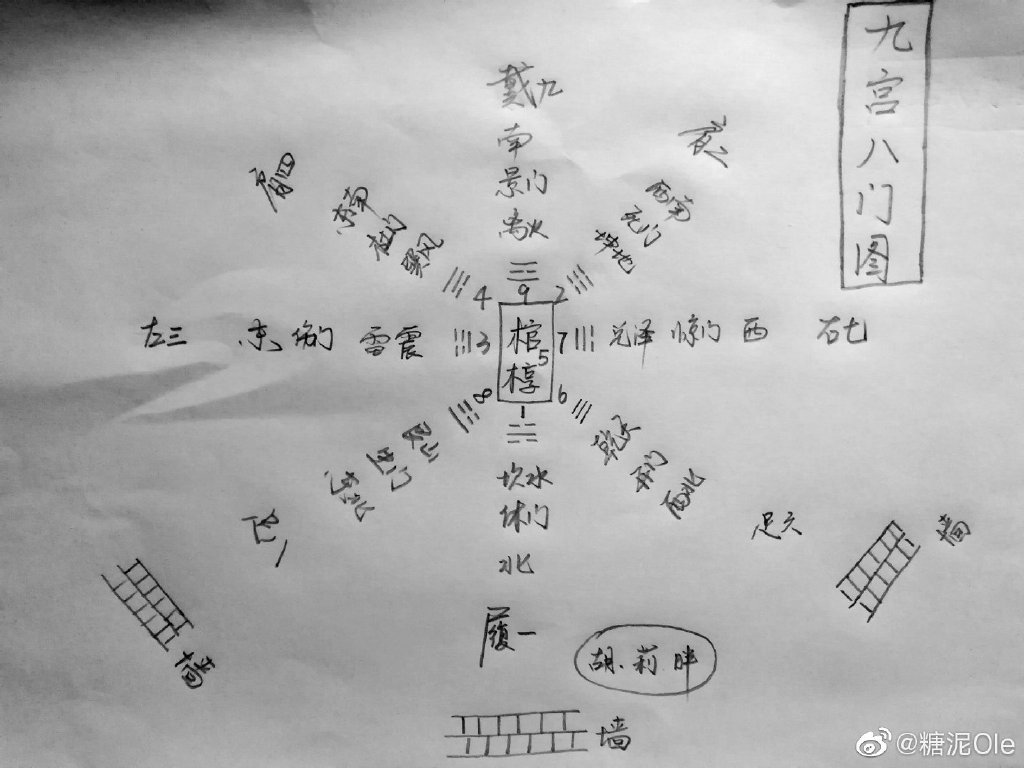 九宫八门图
戴九
南
景门
离火
肩四
东南
杜门
巽风
西南
死门
坤地
4
9
2
左三
东
伤门
雷震
3
棺椁
5
7
兑泽
惊门
西
右七
8
1
6
艮山
生门
东北
坎水
休门
北
乾天
开门
西北
足六
履一
墙
墙
墙
胡莉胖
@糖泥Ole